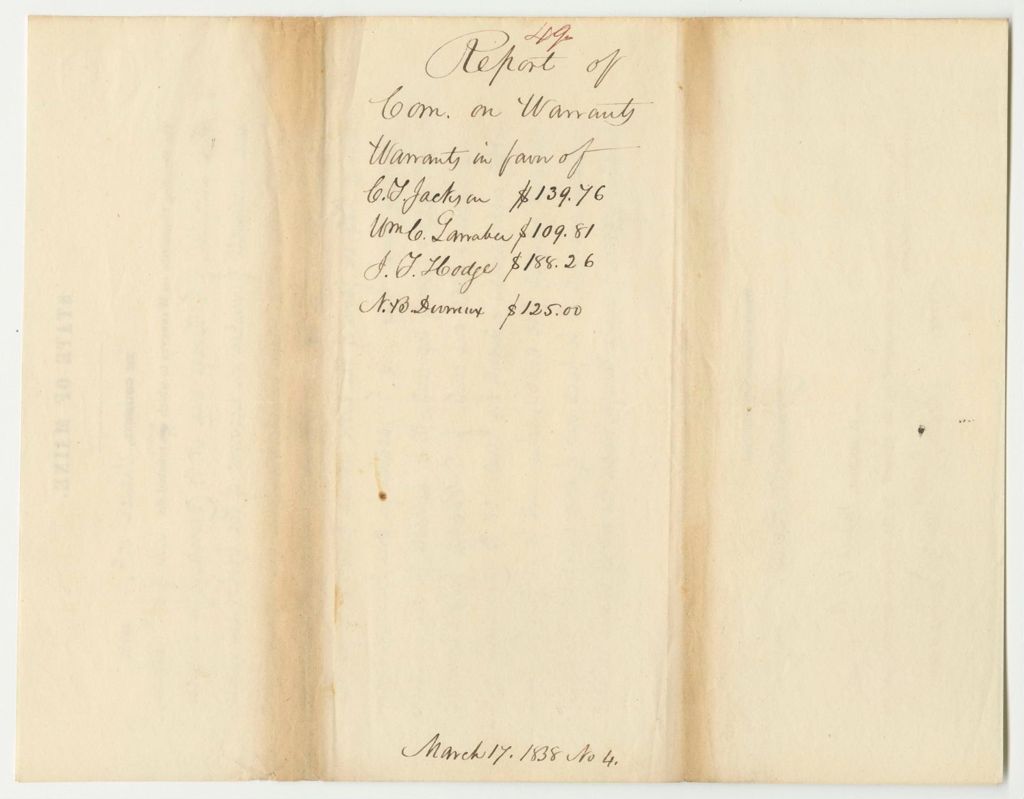 49
Report of
Com. on Warrants
Warrants in favor of
C. T. Jackson $139.76
Wm C. Larrabee $109.81
J. T. Hodge $188.26
N. & B. $125.00
March 17. 1838 No 4.
STATE OF MAINE.